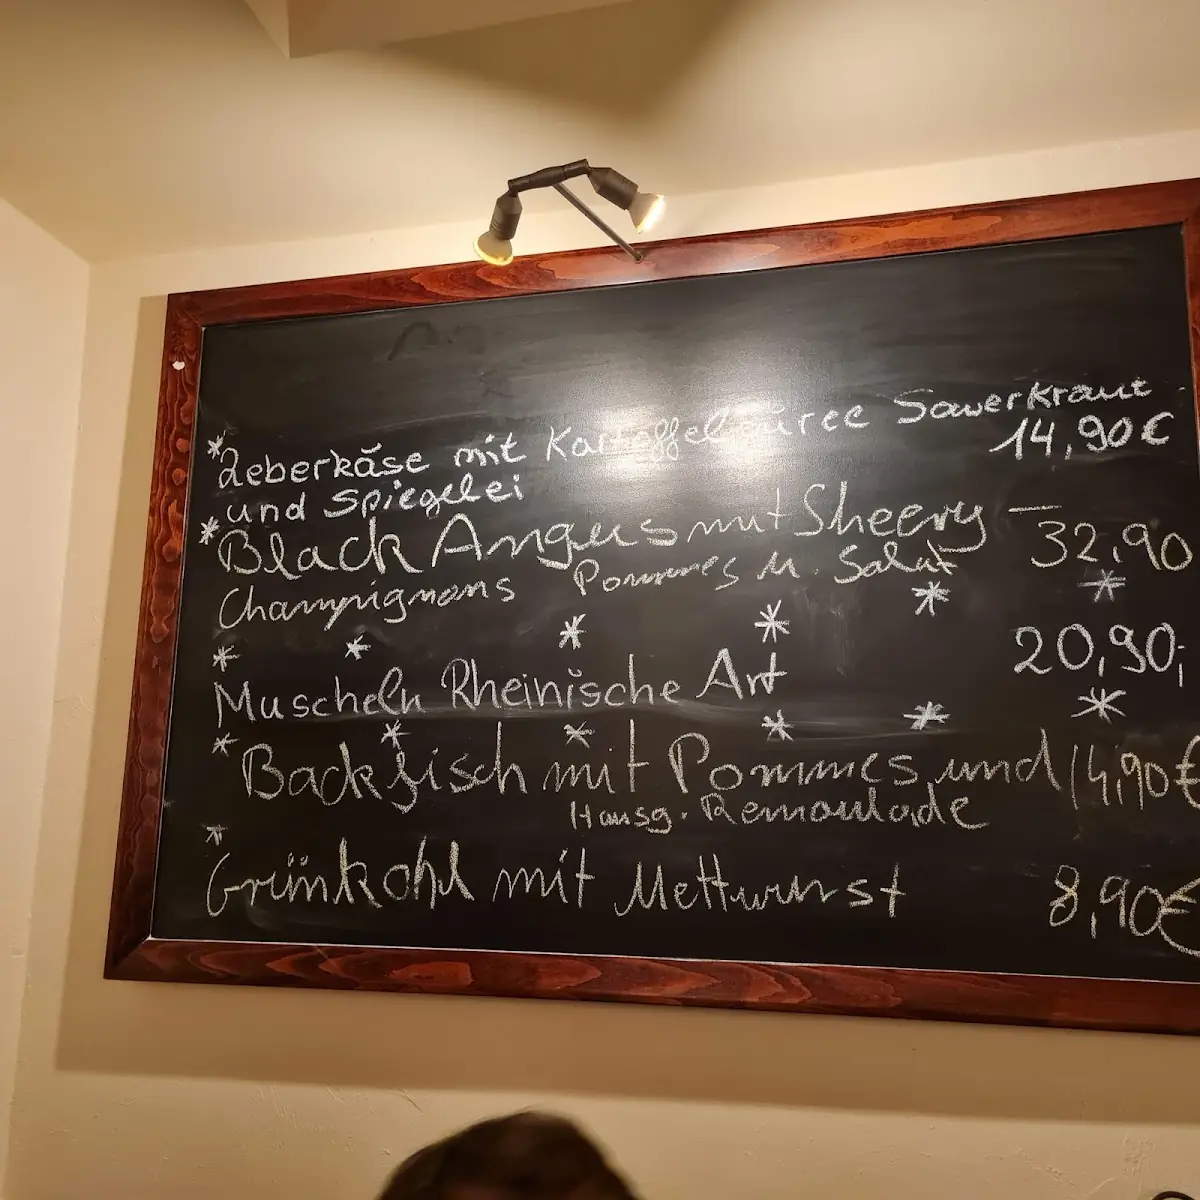 * Leberkäse mit Kartoffelpüree Sauerkraut
und Spiegelei 14,90€
* Black Angus mit Sheery - 32,90
Champignons Pommes u. Salat
* * * * * *
Muscheln Rheinische Art 20,90,-
* * * * * *
Backfisch mit Pommes und 14,90€
Hausg. Remoulade
*
Grünkohl mit Mettwurst 8,90€